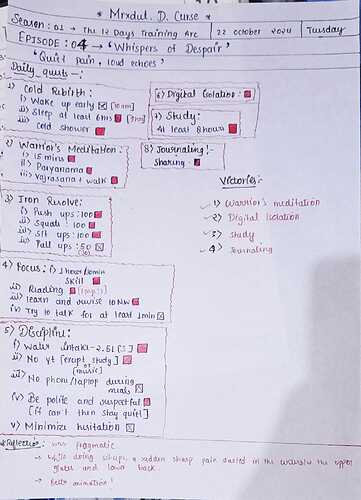 * Mrxdul. D. Curse *
Season: 01 → The 12 Days Training Arc | 22 October 2024 | Tuesday
EPISODE: 04 → 'Whispers of Despair'
'Quiet pain, loud echoes'
Daily quests -:
1) Cold Rebirth:
i) Wake up early [10am]
ii) Sleep at least 6hrs [7hrs]
iii) Cold shower
2) Warrior's Meditation:
i) 15 mins
ii) Paryanama
iii) Vajrasana + walk
3) Iron Resolve:
i) Push ups: 100
ii) Squats: 100
iii) Sit ups: 100
iv) Pull ups: 50
4) Focus: i) 1 hour/
Skill
ii) Reading
iii) learn and revise 10 NW
iv) Try to talk for at least 1min
5) Discipline:
i) Water intake - 2.5l
ii) No yt [except study]
or [music]
iii) No phone/laptop during meals
iv) Be polite and respectful
[if can't then stay quiet]
v) Minimize hesitation
6) Digital Isolation:
7) Study:
At least 8 hours
8) Journaling! -
Sharing -
Victories:-
1) Warrior's meditation
2) Digital Isolation
3) Study
4) Journaling
* Reflection: was pragmatic
→ while doing situps, a sudden sharp pain started in the the upper glutes and lower back.
→ Better animation!